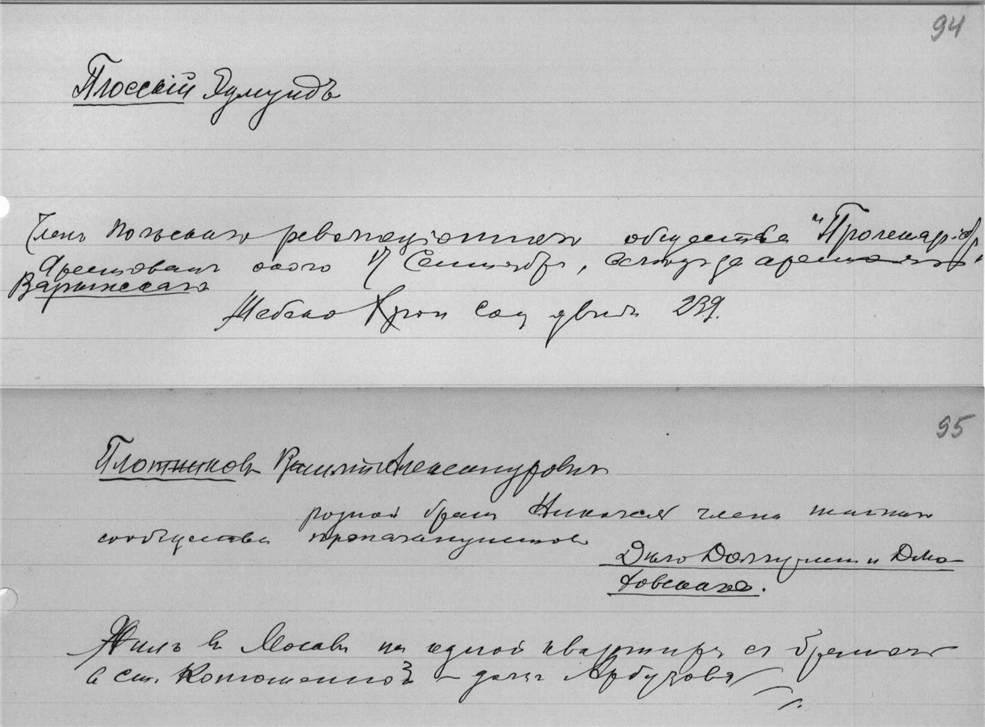 94
Плосскій Эдмундъ
Членъ Польскаго революціоннаго общества "Пролетаріатъ"
Арестованъ около 17 Сентября,
Варынскаго
Шебеко Хрон соц движ 239.
95
Плотниковъ Василій Александровичъ
родной братъ Николая члена тайнаго
сообщества пропагандистовъ
Дѣло Долгушина и Дмо-
ховскаго.
Жилъ въ Москвѣ на одной квартирѣ съ братомъ
в Ст. Конюшенной – домъ Арбузова